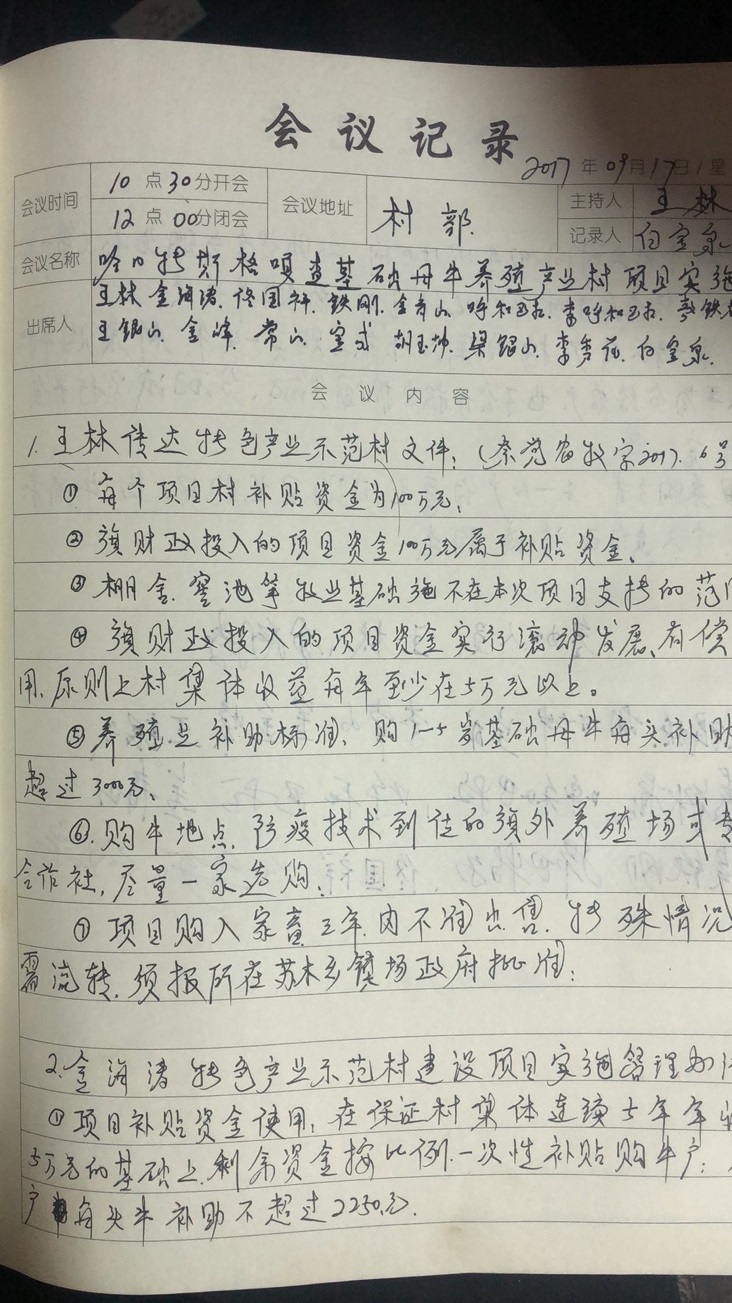 会议记录
2017年09月17日/星
会议时间 10点30分开会 会议地址 村部. 主持人 王林
12点00分闭会 记录人 白宝泉
会议名称 哈日特斯格嘎查基础母牛养殖产业村项目实施
出席人 王林 金海涛. 佟国祥. 铁刚. 金青山 呼和巴拉. 李呼和巴拉.
王银山. 金峰. 常山. 宝成 胡玉坤. 梁银山. 李秀花. 白宝泉.
会议内容
1. 王林传达特色产业示范村文件:(奈党农牧字2017. 6号
① 每个项目村补贴资金为100万元,
② 旗财政投入的项目资金100万元属于补贴资金、
③ 棚舍. 窖池等牧业基础施不在本次项目支持的范
④ 旗财政投入的项目资金实行滚动发展、有偿
用, 原则上村集体收益每年至少在5万元以上。
⑤ 养殖业补助标准, 购1-5岁基础母牛每头补助
超过3000元、
⑥. 购牛地点 防疫技术到位的旗外养殖场或专
合作社, 尽量一家选购;
⑦ 项目购入家畜三年内不准出售. 特殊情况
需流转. 须报所在苏木乡镇场政府批准;
2. 金海涛特色产业示范村建设项目实施管理办
① 项目补贴资金使用, 在保证村集体连续七年年
5万元的基础上, 剩余资金按比例. 一次性补贴购牛户;
户每头牛补助不超过2250元.